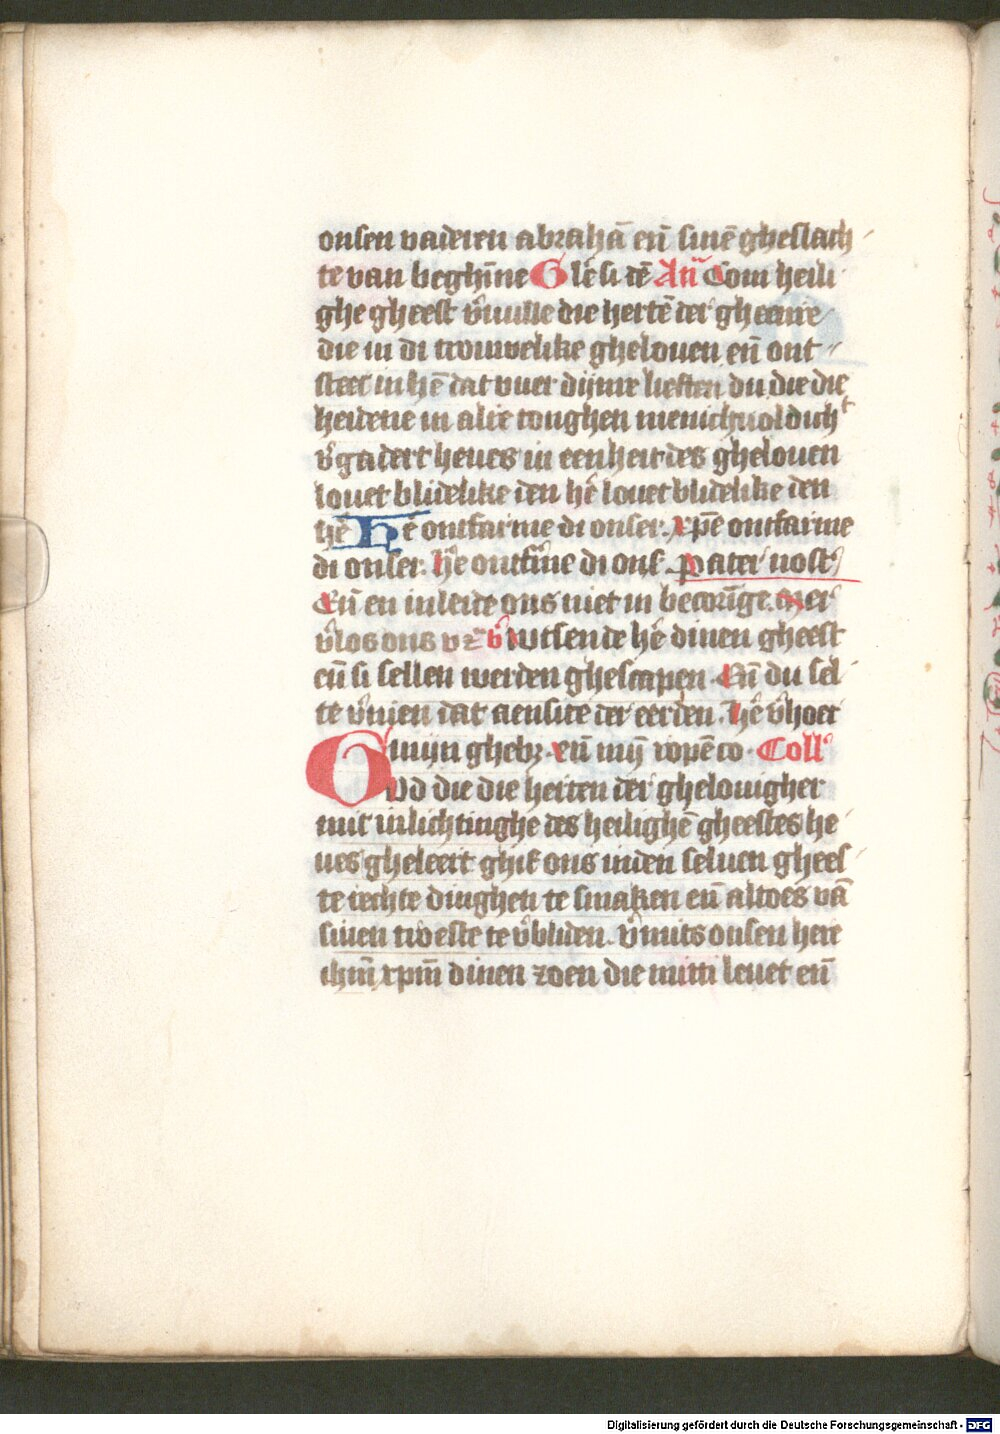 onsen vaderen abrahā eñ sinē gheslach
te van beghīne Glē si dē Añ Com heili
ghe gheest v̄uulle die hertē der gheenre
die in di trouwelike ghelouen eñ ont
steec in hē dat vuer dijnre lieften du die die
heidene in alre tonghen menichuoldich^t
v̄gadert heues in eenheit des ghelouen
louet blidelike den hē louet blidelike den
hē Hē ontfarme di onser. xpē ontfarme
di onser. hē ontfme di ons Pater nost
Eñ en inleide ons niet in becorīge. mer
v̄los ons vā v̄ wtsende hē dinen gheest
eñ si sellen werden ghescapen. Eñ du sel
te v̄nien dat aensite der eerden. hē v̄hoer
mijn ghebȝ. eñ mij ropē co. Coll
God die die herten der ghelouigher
mit inlichtinghe des heilighē gheestes he
ues gheleert ghif ons inden seluen ghees
te rechte dinghen te smaken eñ altoes vā
sinen troeste te v̄bliden. v̄mits onsen here
ihm̄ xpm̄ dinen zoen die mitti leuet eñ
Digitalisierung gefördert durch die Deutsche Forschungsgemeinschaft - DFG